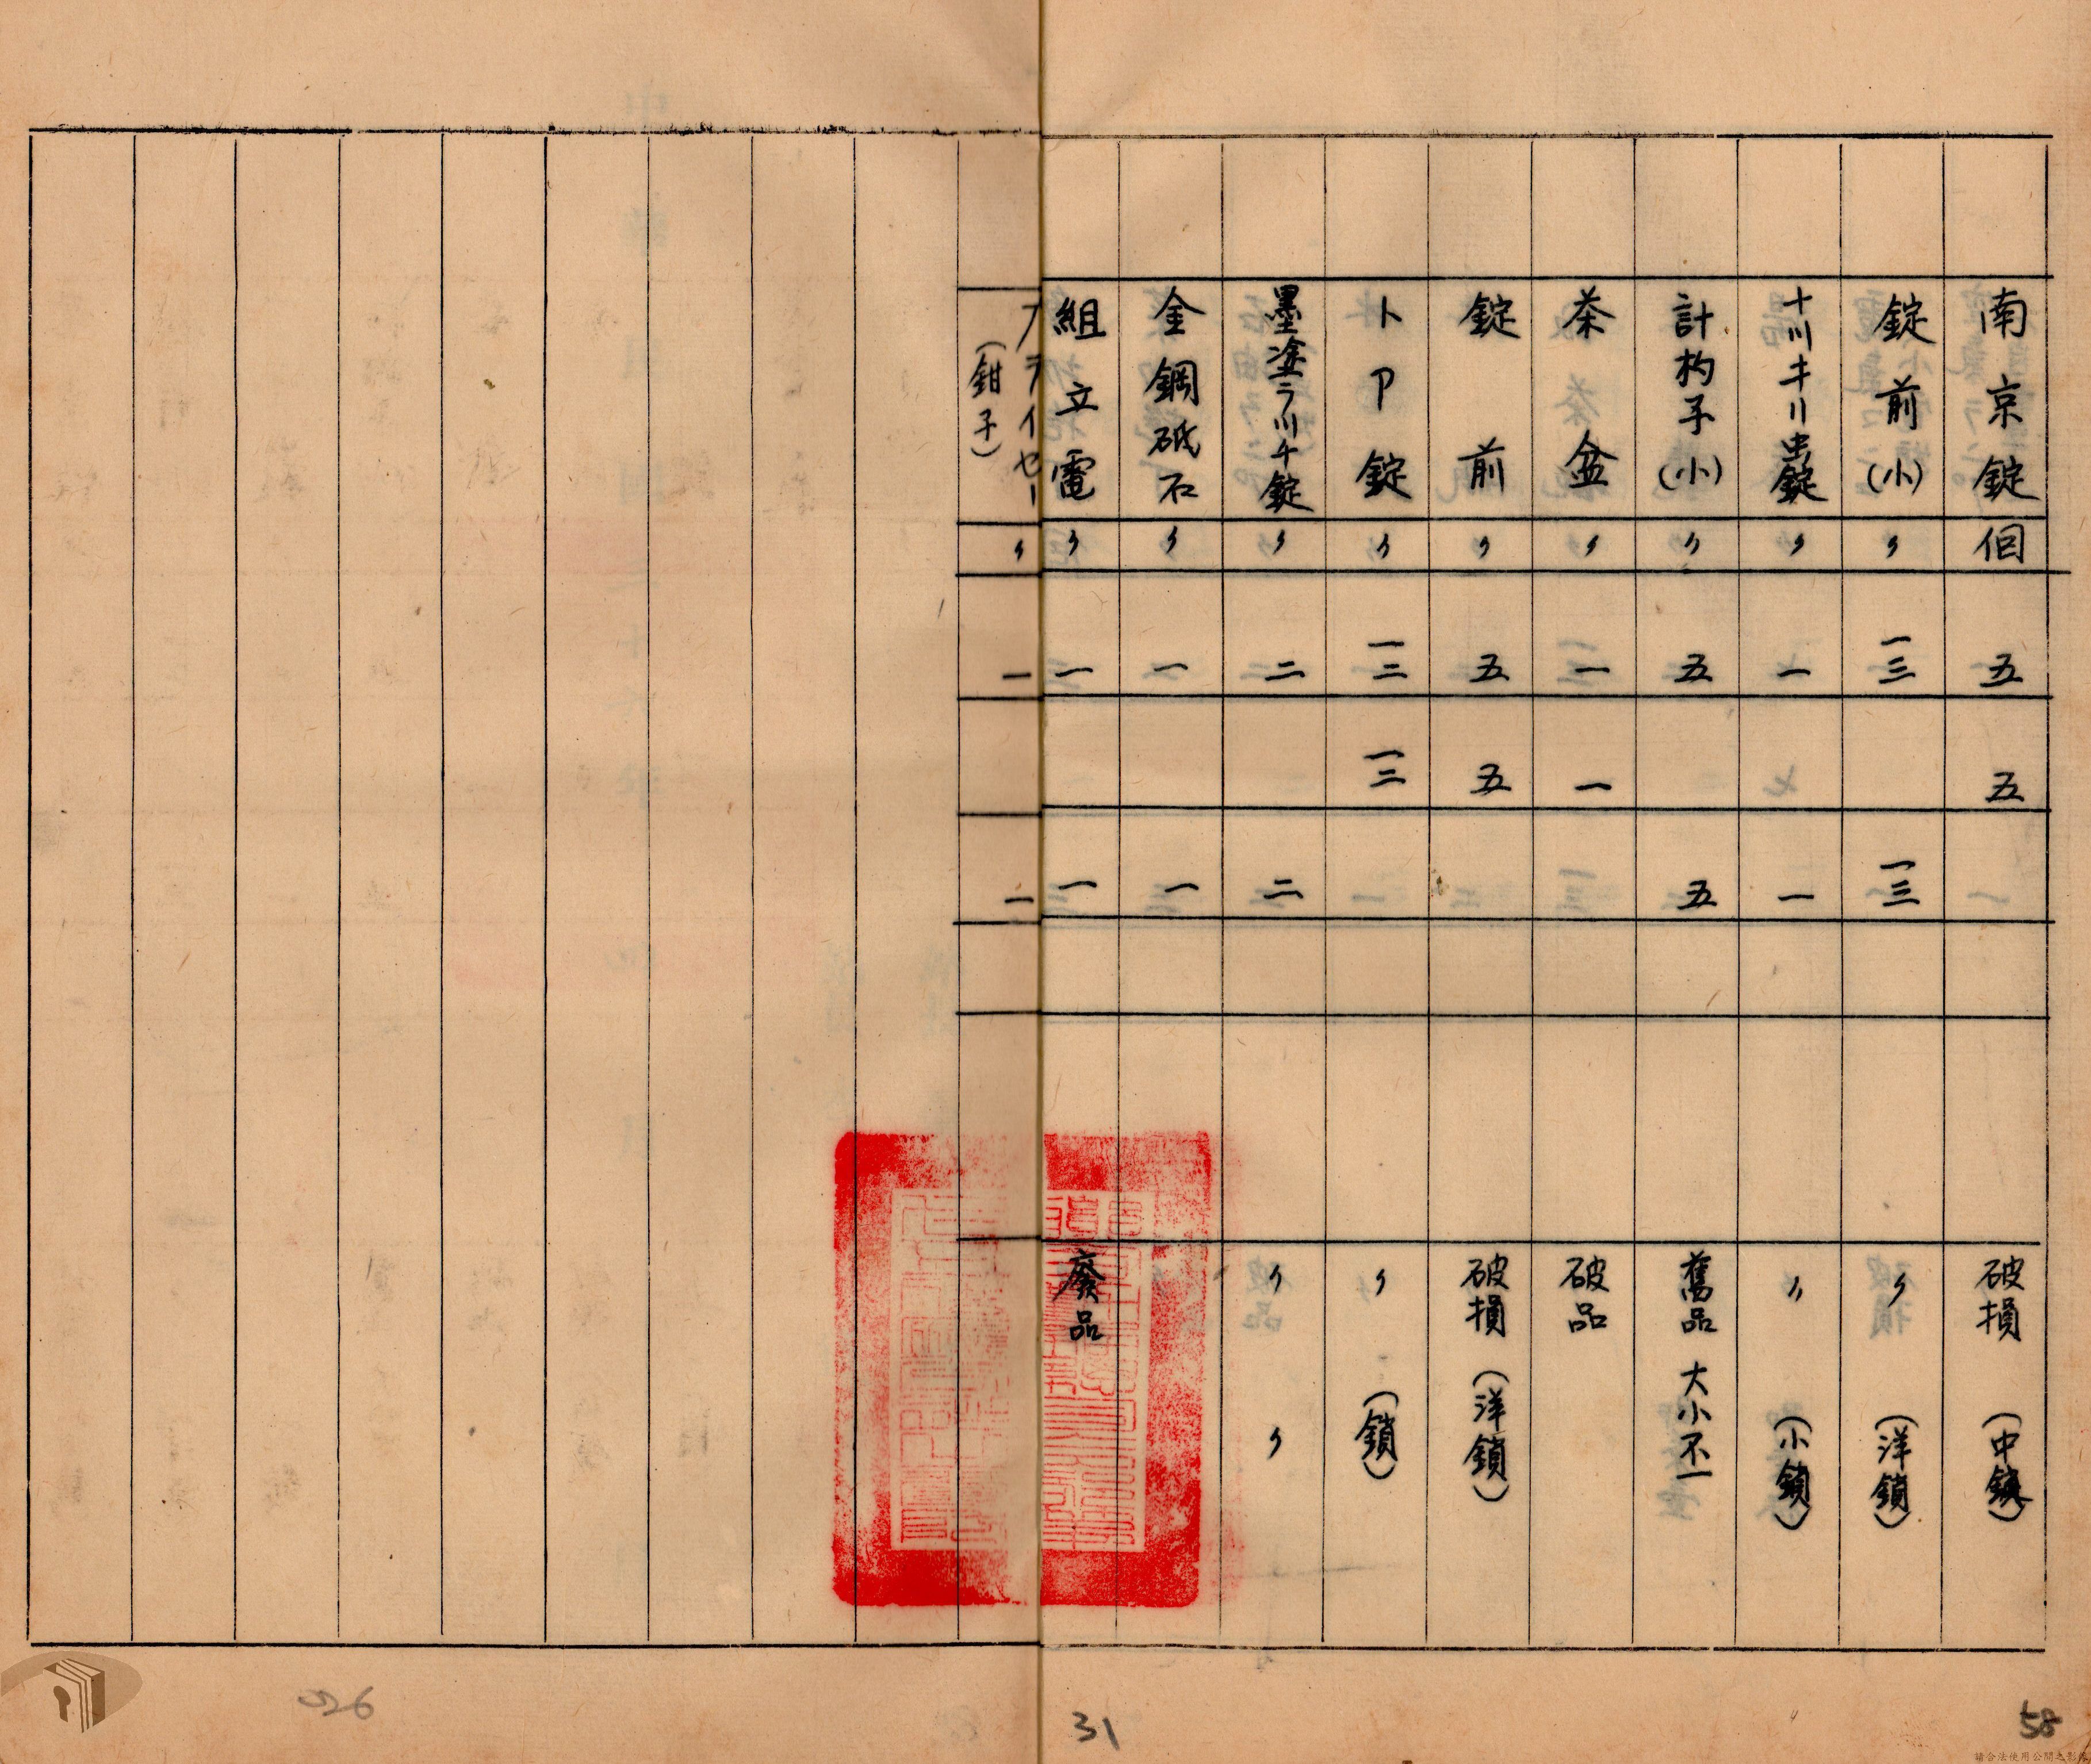 南京錠 個 五 五 破損 (中鎖)
錠前(小) 〃 一三 一三 〃 (洋鎖)
〃 一 一 〃 (小鎖)
計杓子(小) 〃 五 五 舊品 大小不一
茶盆 〃 一 一 破品
錠前 〃 五 五 破損 (洋鎖)
トア錠 〃 一三 一三 〃 (鎖)
墨塗ラ川チ錠 〃 二 二 〃 〃
金鋼砥石 〃 一 一
組立電 〃 一 一 廢品
フライセー (鉗子) 〃 一 一
026
31
58
請合法使用公開之影像